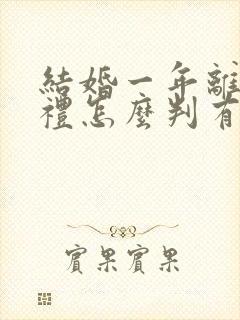 結婚一年離
禮怎麼判有
實果實果